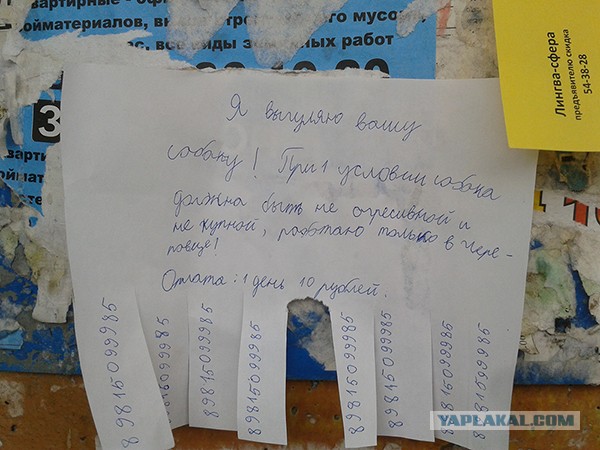 вартирные - оф
ойматериалов, в
го мусо
все виды зем ных работ
Лингва-сфера
предъявителю скидка
54-38-28
Я выгуляю вашу
собаку! При 1 условии собака
должна быть не агресивной и
не купной, работаю только в Чере-
повце!
Оплата: 1 день 10 рублей.
89815099985
815099985
89815099985
89815099985
89815099985
89815099985
89815099985
YAPLAKAL.COM